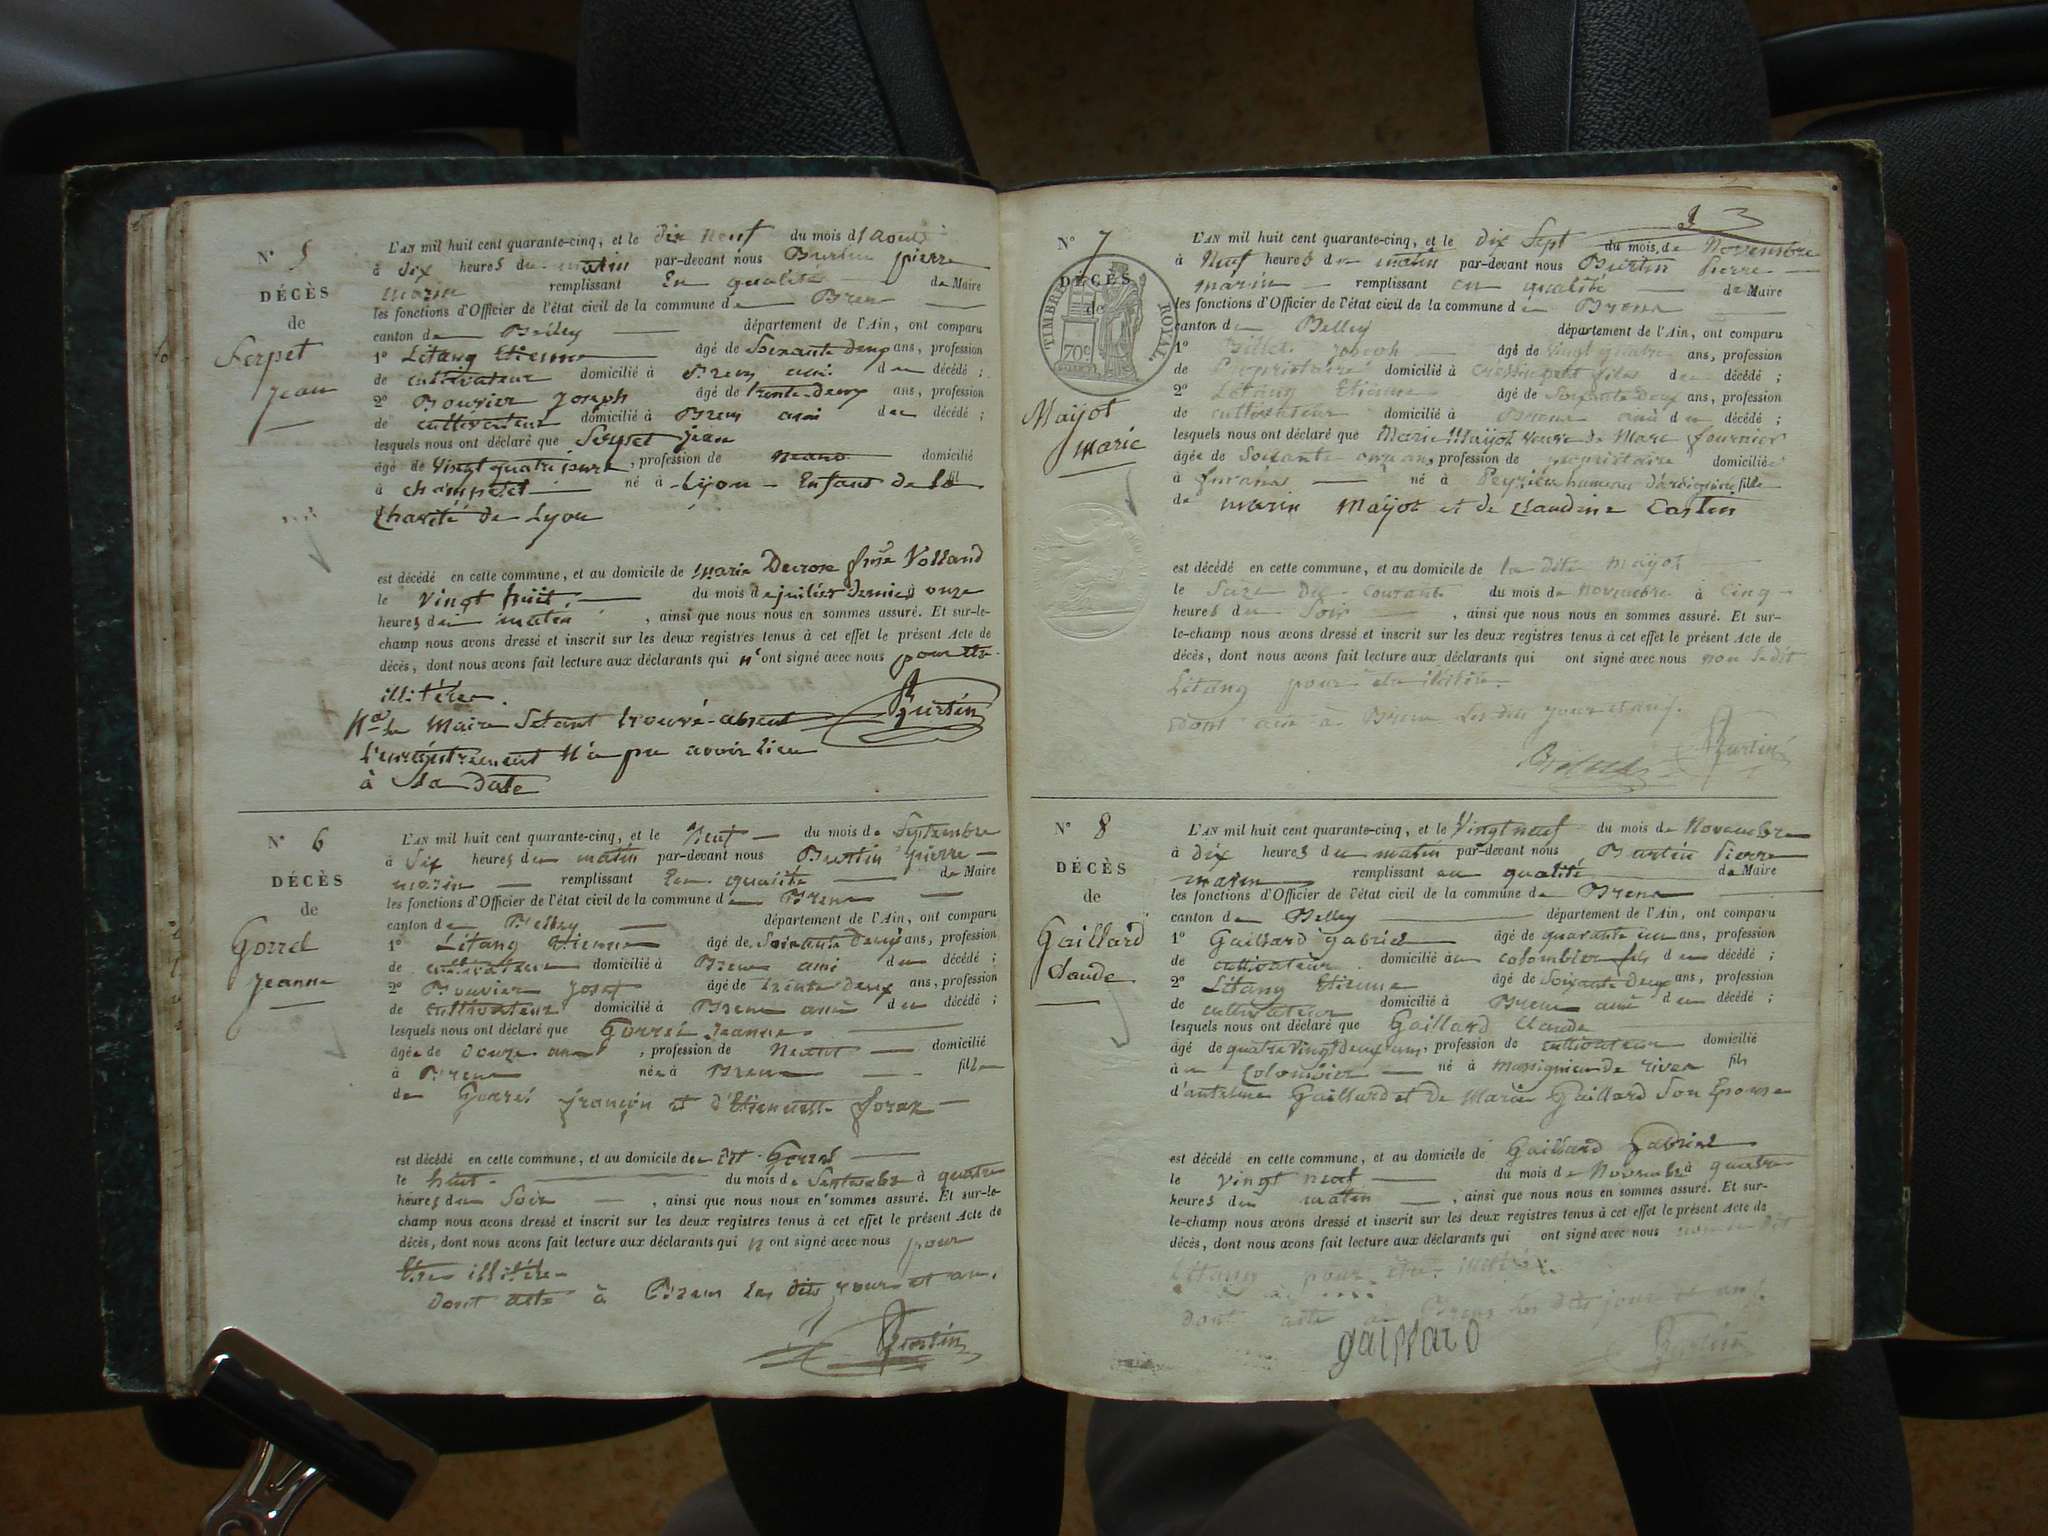 N° 5
DÉCÈS
de
Serpet
Jean
L'AN mil huit cent quarante-cinq, et le dix neuf du mois d'Aout
à dix heures du matin par-devant nous Burtin pierre
marin remplissant En qualité de Maire
les fonctions d'Officier de l'état civil de la commune de Bren
canton de Belley département de l'Ain, ont comparu
1° Litang Etienne âgé de Soixante deux ans, profession
de cultivateur domicilié à Bren ami du décédé ;
2° Bouvier Joseph âgé de trente-deux ans, profession
de cultivateur domicilié à Bren ami du décédé ;
lesquels nous ont déclaré que Serpet jean
âgé de vingt quatre jours, profession de néant domicilié
à né à Lyon Enfant de la fil
Charité de Lyon
est décédé en cette commune, et au domicile de Marie Volland
le vingt huit du mois de juillet dernier à onze
heures du matin, ainsi que nous nous en sommes assuré. Et sur-le-
champ nous avons dressé et inscrit sur les deux registres tenus à cet effet le présent Acte de
décès, dont nous avons fait lecture aux déclarants qui n'ont signé avec nous pour être
illitérés
Na le Maire Setant trouvé absent Burtin
L'enregistrement n'a pu avoir lieu
à Sa Date
N° 6
DÉCÈS
de
Gorrel
Jeanne
L'AN mil huit cent quarante-cinq, et le Neuf du mois de Septembre
à Six heures du matin par-devant nous Burtin pierre
marin remplissant En qualité de Maire
les fonctions d'Officier de l'état civil de la commune de Bren
canton de Belley département de l'Ain, ont comparu
1° Litang Etienne âgé de Soixante Deux ans, profession
de cultivateur domicilié à Bren ami du décédé ;
2° Bouvier Josef âgé de trente deux ans, profession
de cultivateur domicilié à Bren ami du décédé ;
lesquels nous ont déclaré que Gorrel Jeanne
âgée de Douze ans, profession de Néant domicilié
à Bren née à Bren fille
de Gorrel françois et d'Etiennette
est décédé en cette commune, et au domicile de dit Gorrel
le huit du mois de Septembre à quatre
heures du Soir, ainsi que nous nous en sommes assuré. Et sur-le-
champ nous avons dressé et inscrit sur les deux registres tenus à cet effet le présent Acte de
décès, dont nous avons fait lecture aux déclarants qui n ont signé avec nous pour
Etre illitérés
Dont acte à Bren les dits jour et an.
Burtin
3
N° 7
DÉCÈS
de
TIMBRE ROYAL
70c
Mayot
Marie
L'AN mil huit cent quarante-cinq, et le dix Sept du mois de Novembre
à Neuf heures du matin par-devant nous Burtin Pierre
marin remplissant en qualité de Maire
les fonctions d'Officier de l'état civil de la commune de Bren
canton de Belley département de l'Ain, ont comparu
1° Billet joseph âgé de vingt quatre ans, profession
de Propriétaire domicilié à du décédé ;
2° Litang Etienne âgé de Soixante deux ans, profession
de cultivateur domicilié à Bren ami du décédé ;
lesquels nous ont déclaré que Marie Mayot veuve de Marc fournier
âgée de Soixante onze ans, profession de propriétaire domiciliée
à né à Peyrieu hameau fille
de marin Mayot et de Claudine Castin
est décédé en cette commune, et au domicile de la dite Mayot
le Seize du courant du mois de novembre à Cinq
heures du Soir, ainsi que nous nous en sommes assuré. Et sur-
le-champ nous avons dressé et inscrit sur les deux registres tenus à cet effet le présent Acte de
décès, dont nous avons fait lecture aux déclarants qui ont signé avec nous non le dit
Litang pour être
Dont acte à Bren les dits jour et an.
Burtin
N° 8
DÉCÈS
de
Gaillard
Claude
L'AN mil huit cent quarante-cinq, et le Vingt neuf du mois de Novembre
à dix heures du matin par-devant nous Burtin Pierre
marin remplissant en qualité de Maire
les fonctions d'Officier de l'état civil de la commune de Bren
canton de Belley département de l'Ain, ont comparu
1° Gaillard gabriel âgé de quarante un ans, profession
de cultivateur domicilié à colombier fils du décédé ;
2° Litang Etienne âgé de Soixante deux ans, profession
de cultivateur domicilié à Bren ami du décédé ;
lesquels nous ont déclaré que Gaillard Claude
âgé de quatre vingt deux ans, profession de cultivateur domicilié
à colombier né à Massignieu de rives fils
d'antelme Gaillard et de Marie Gaillard Son Epouse
est décédé en cette commune, et au domicile de Gaillard Gabriel
le vingt neuf du mois de Novembre à quatre
heures du matin, ainsi que nous nous en sommes assuré. Et sur-
le-champ nous avons dressé et inscrit sur les deux registres tenus à cet effet le présent Acte de
décès, dont nous avons fait lecture aux déclarants qui ont signé avec nous non le dit
Litang pour être
Dont acte à Bren les dits jour et an.
gaillard
Burtin